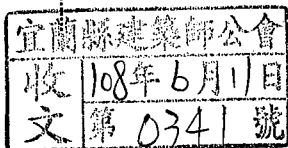 宜蘭縣建築師公會
收文
108年6月11日
第0341號